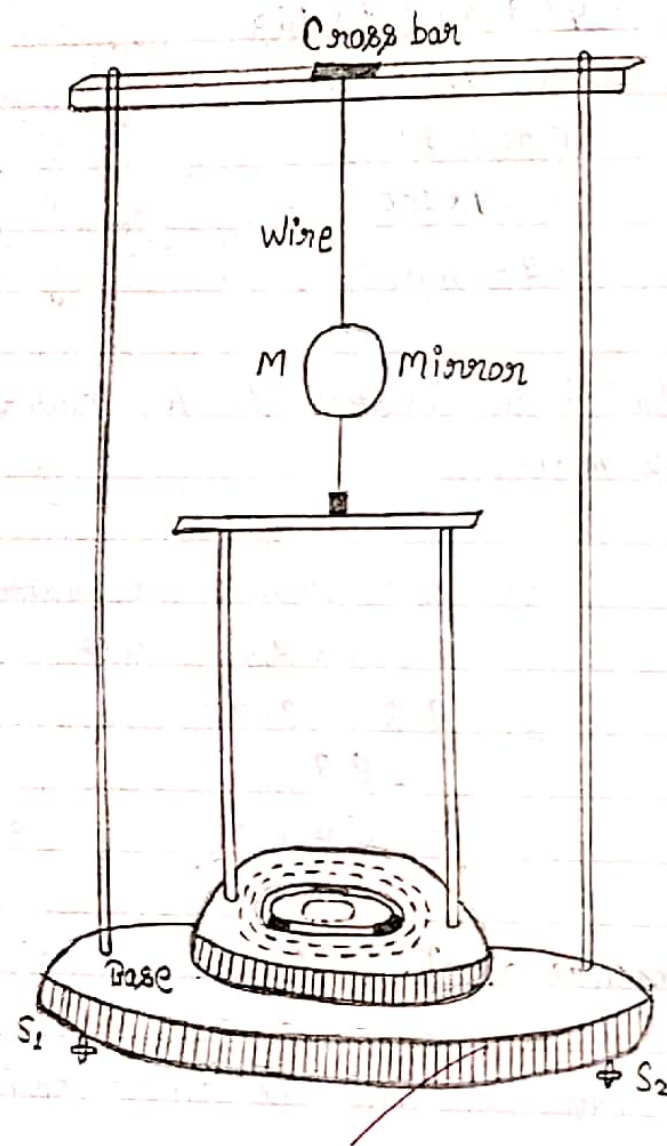 Cross bar
Wire
M
Mirror
Base
S1
S2